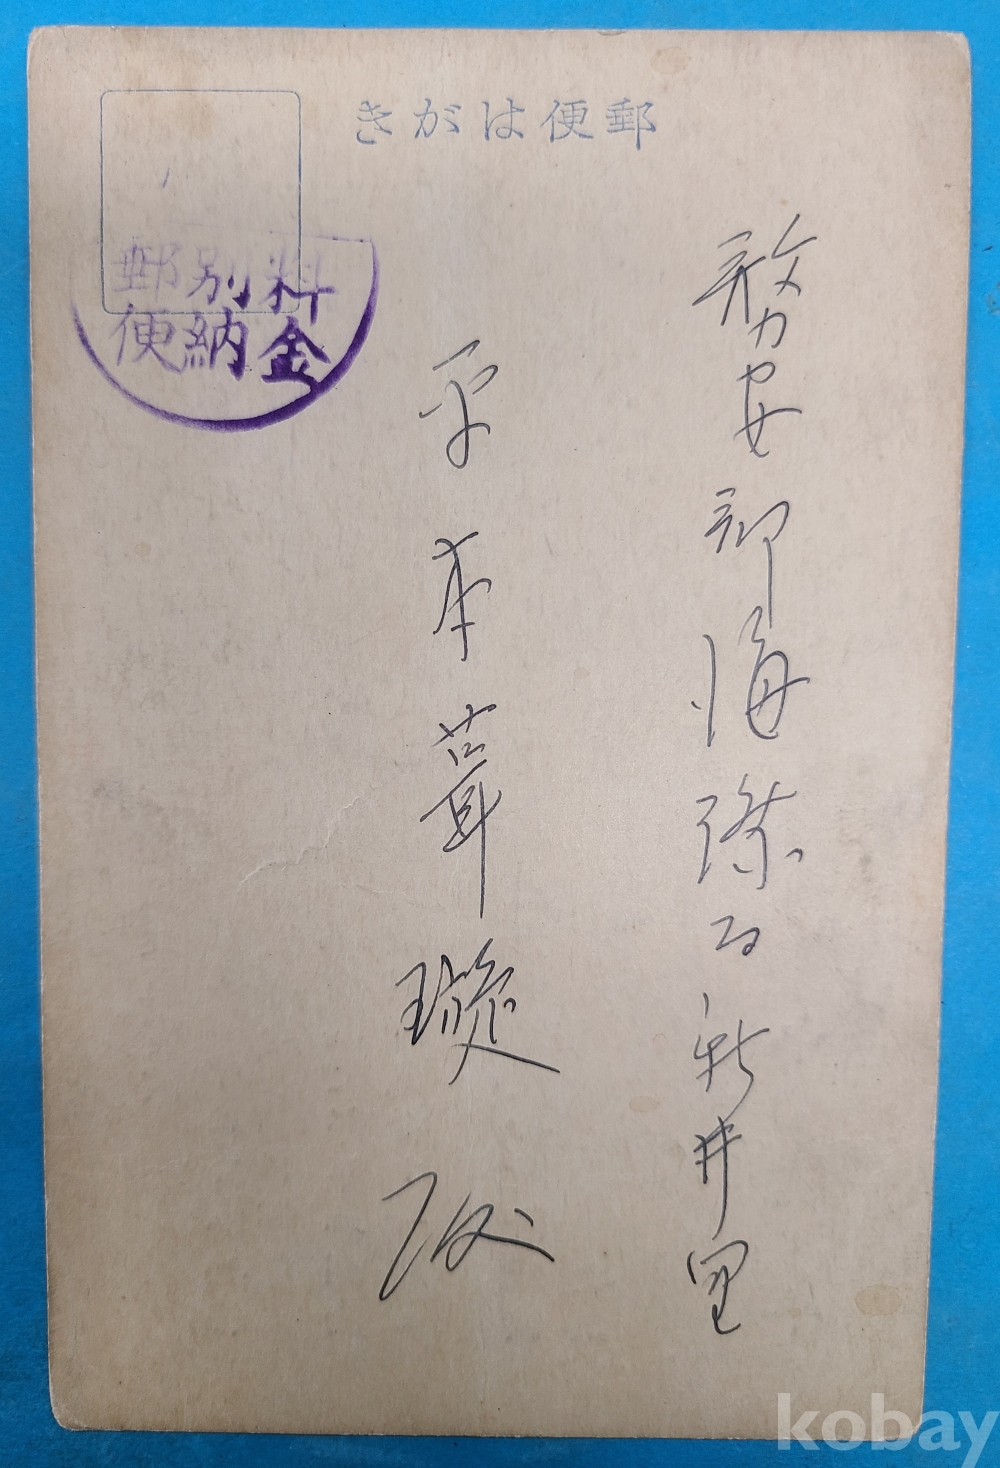 郵便はがき
料金
別納
郵便
務安郡海際面新井里
平本璇殿
kobay